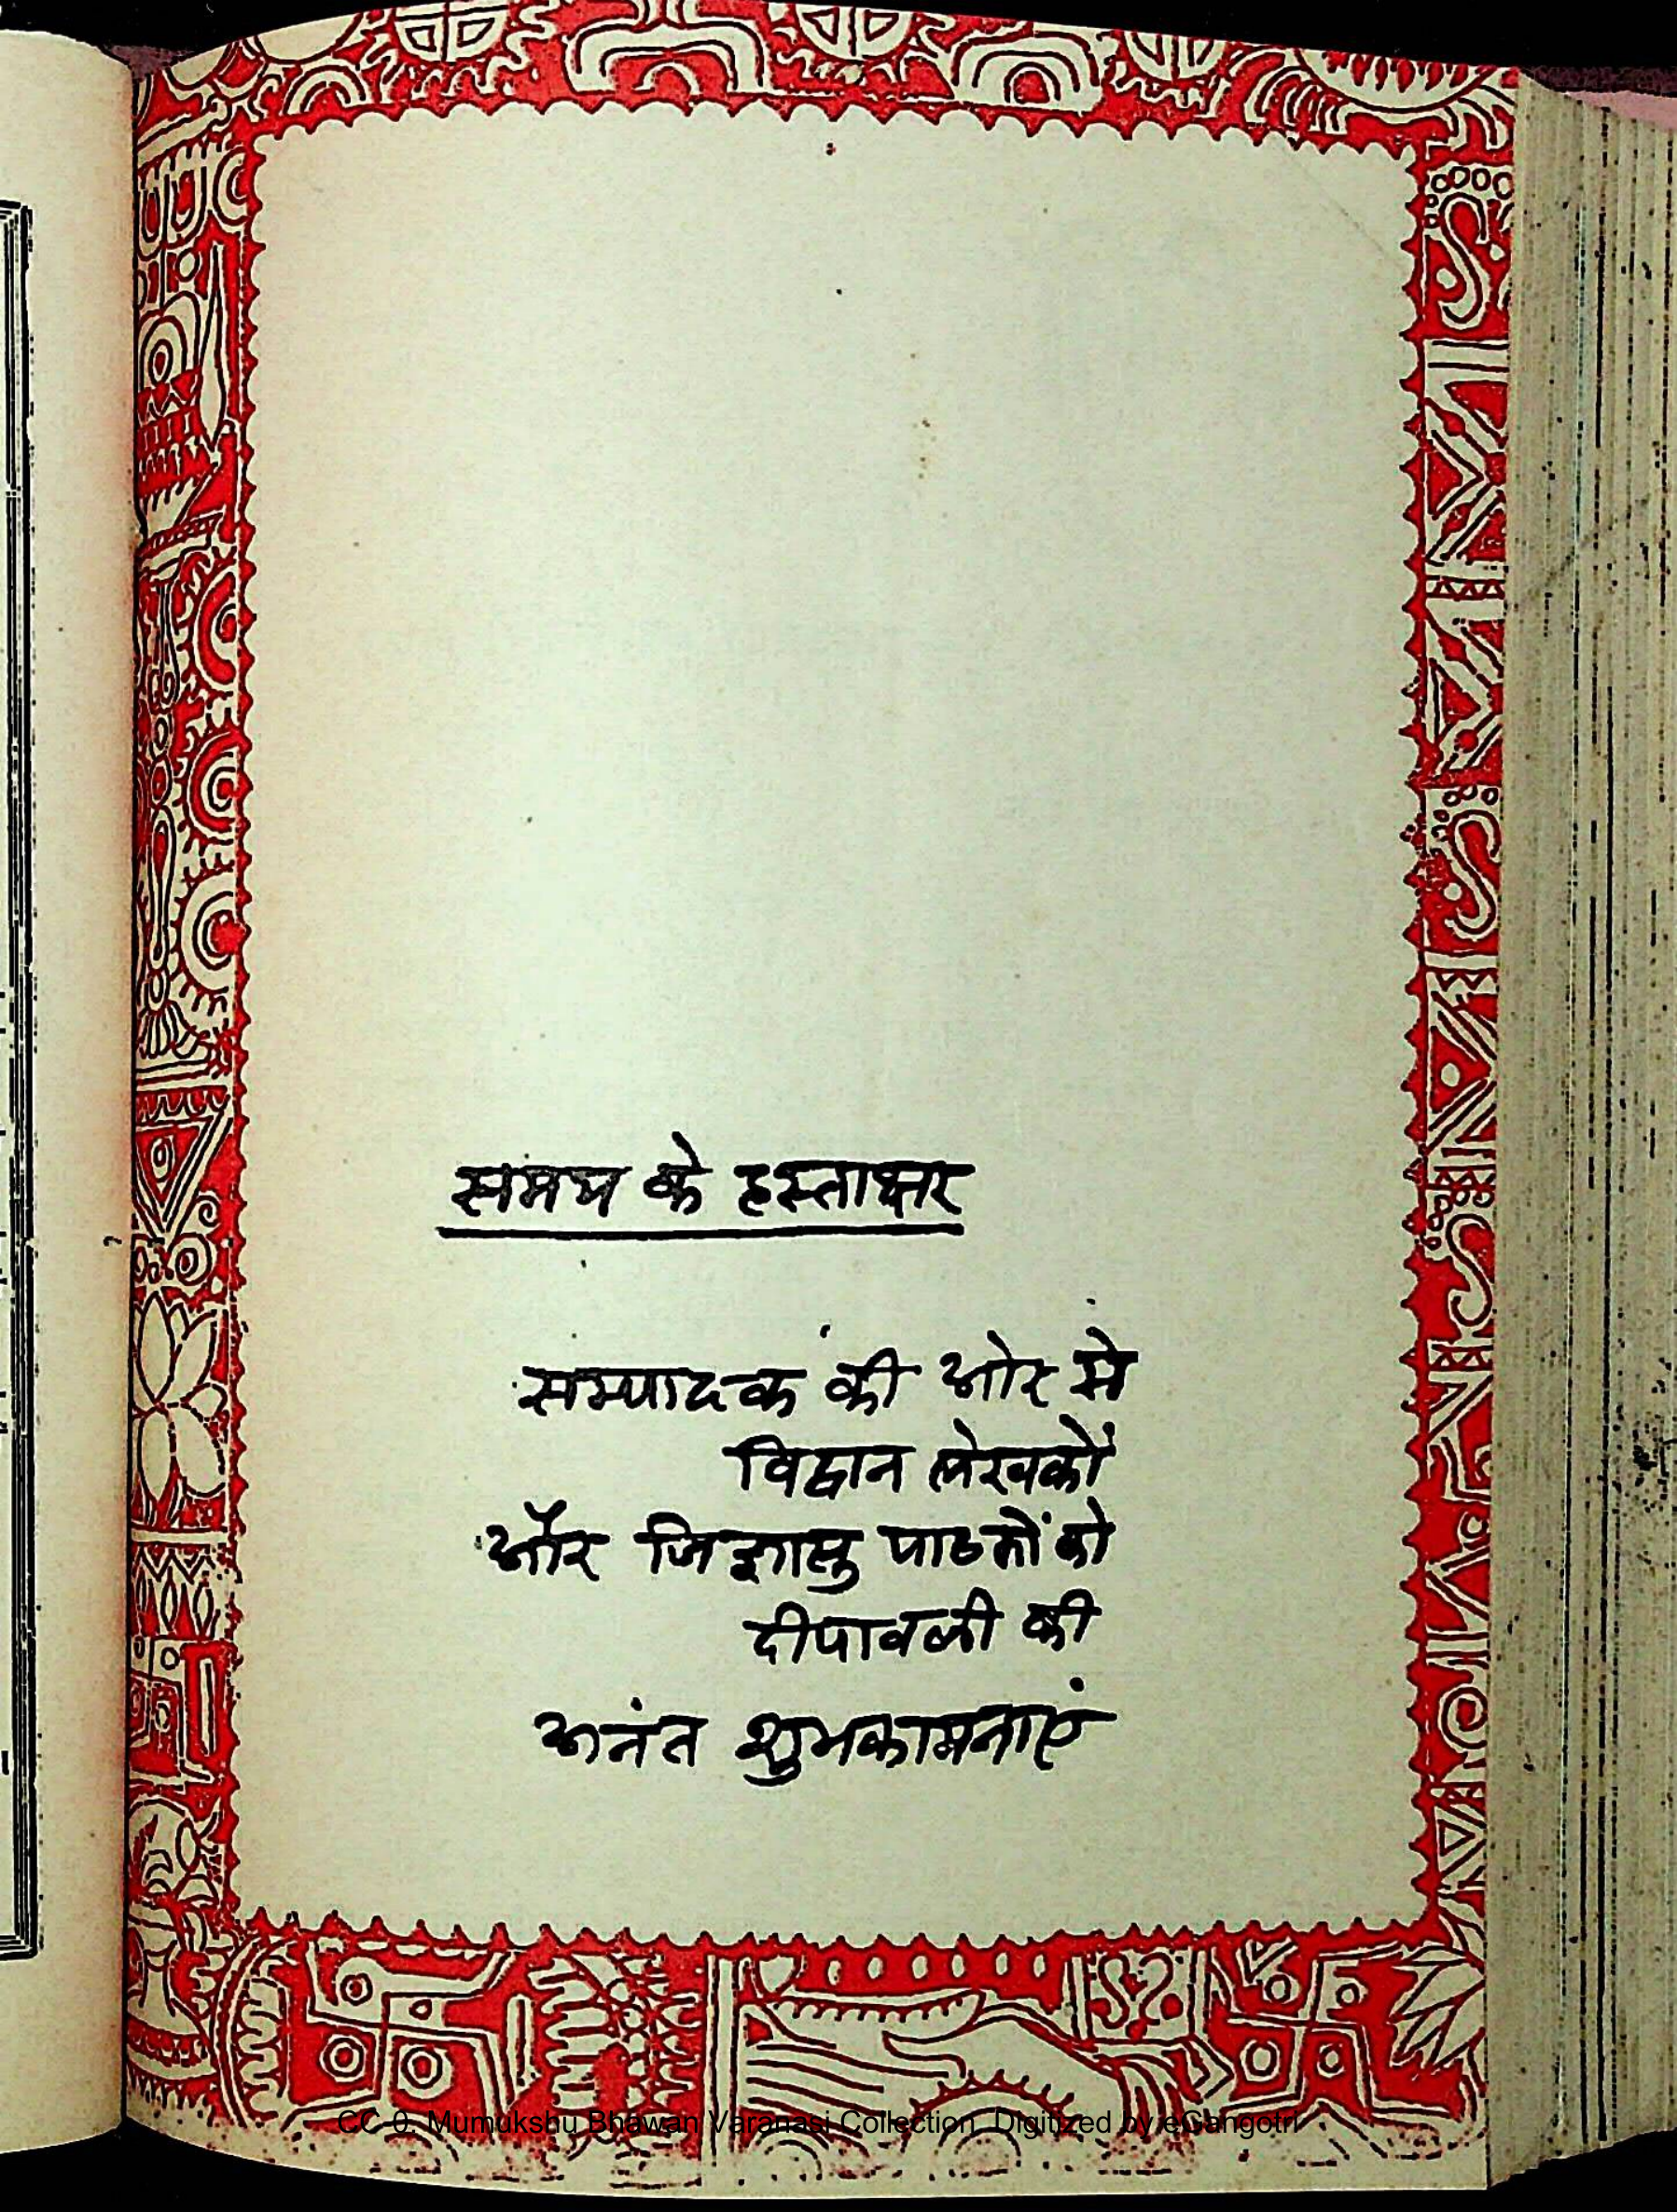 समय के हस्ताक्षर
सम्पादक की ओर से
विद्वान लेखकों
और जिज्ञासु पाठकों को
दीपावली की
अनंत शुभकामनाएं
CC-0. Mumukshu Bhawan Varanasi Collection. Digitized by eGangotri